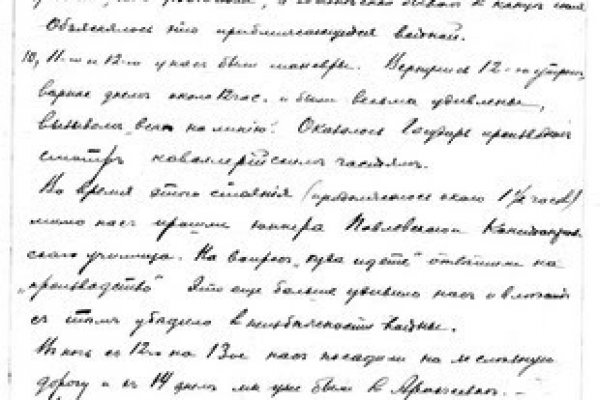 Объяснялось это приближающейся войной.
10, 11-го и 12-го у нас были маневры. Вернулись 12-го утром,
вернее днем около 12 час. и были весьма удивлены,
вызовом "всех на линию". Оказалось Государь производил
смотръ кавалерийским частям.
Во время этого стояния (продолжалось около 1½ часов)
мимо нас прошли юнкера Павловского
училища. На вопрос "куда идете" отвечали на
"производство" Это еще больше удивило нас и
с тем убедило в неизбежности войны.
В ночь с 12го на 13ое нас посадили на железную
дорогу и к 14 дня мы уже были в